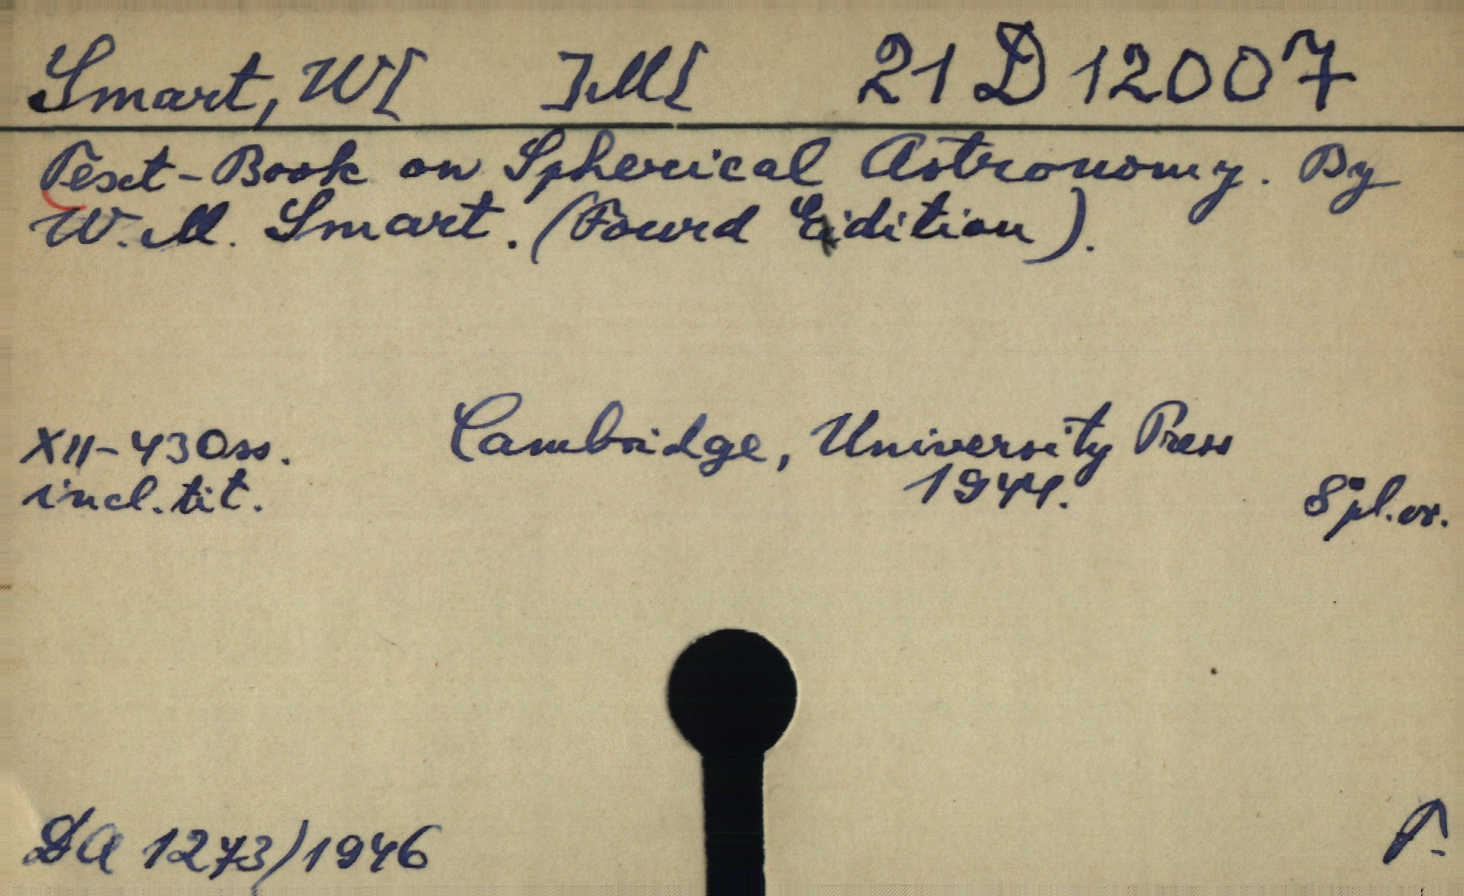 Smart, W[ ]M[ 21 D 12007
Text-Book on Spherical Astronomy. By
W. M. Smart. (Fourd Edition).
XII-430 ss. Cambridge, University Press
incl. tit. 1944. 8° pl. or.
DA 1273/1946